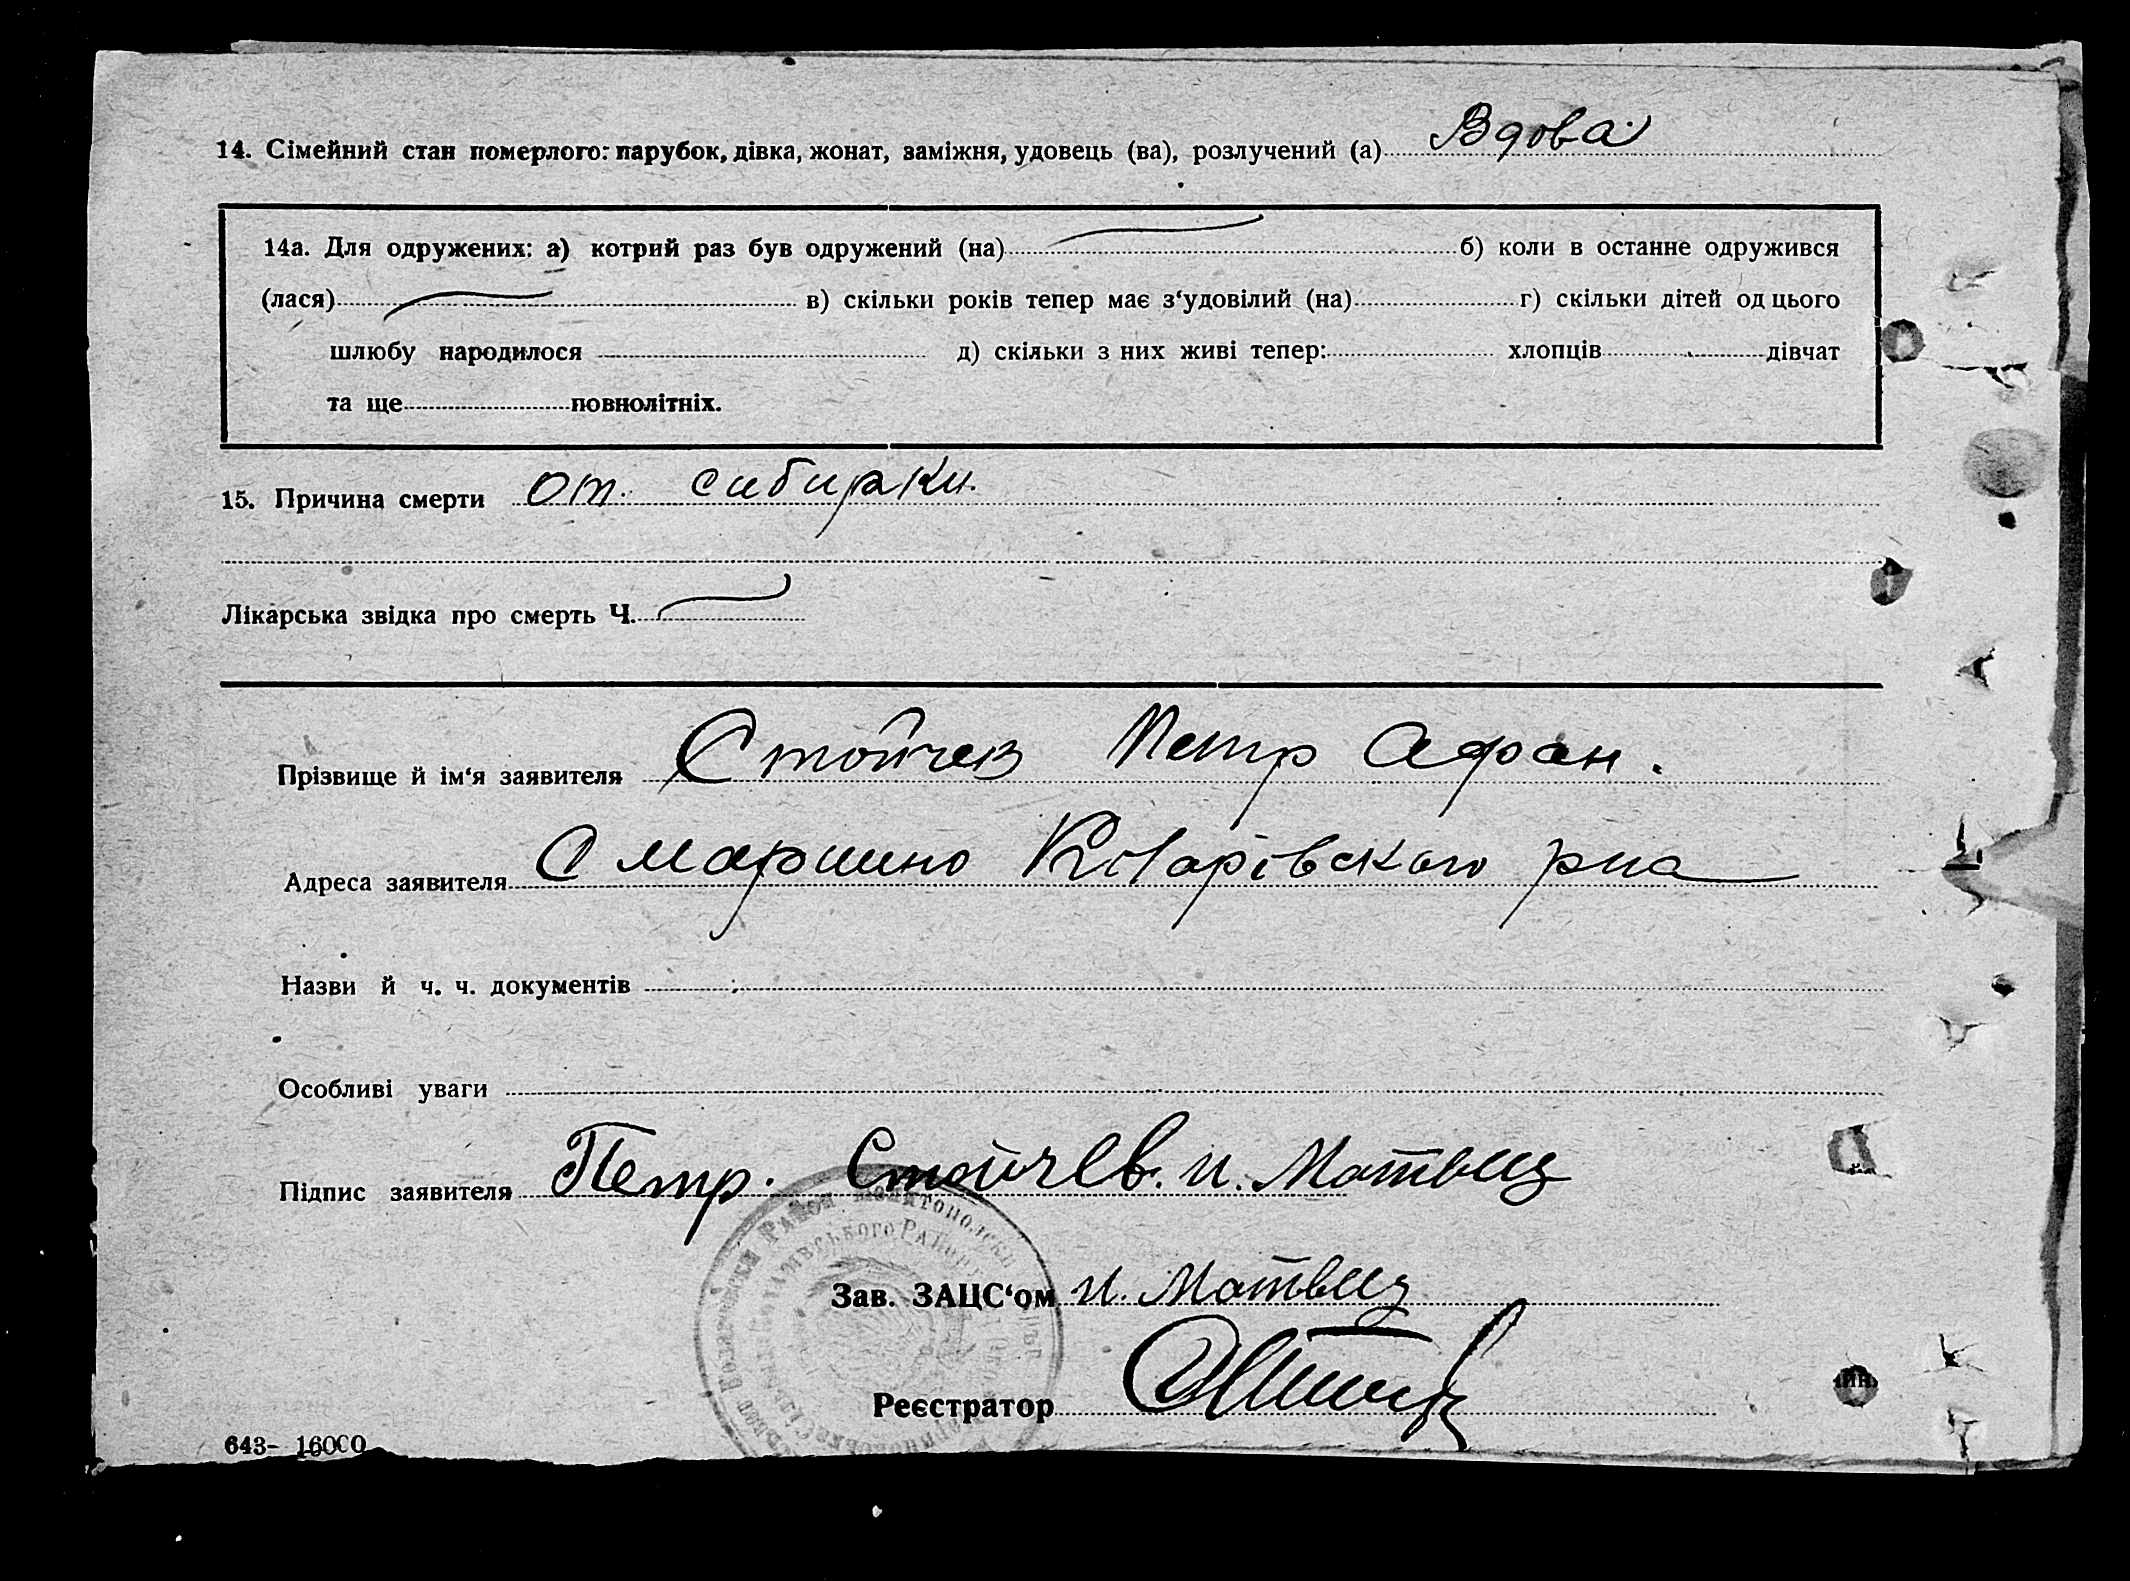 14. Сімейний стан померлого: парубок, дівка, жонат, заміжня, удовець (ва), розлучений (а) Вдова
14а. Для одружених: а) котрий раз був одружений (на) б) коли в останнє одружився
(лася) в) скільки років тепер має з‘удовілий (на) г) скільки дітей од цього
шлюбу народилося д) скільки з них живі тепер: хлопців дівчат
та ще повнолітніх.
15. Причина смерти от сибирки.
Лікарська звідка про смерть Ч.
Прізвище й ім‘я заявителя Стойчев Петр Афан.
Адреса заявителя С Марыино рна
Назви й ч. ч. документів
Особливі уваги
Підпис заявителя Петр. Стойчев. И.
Зав. ЗАЦС‘ом И.
Реєстратор
643- 16000